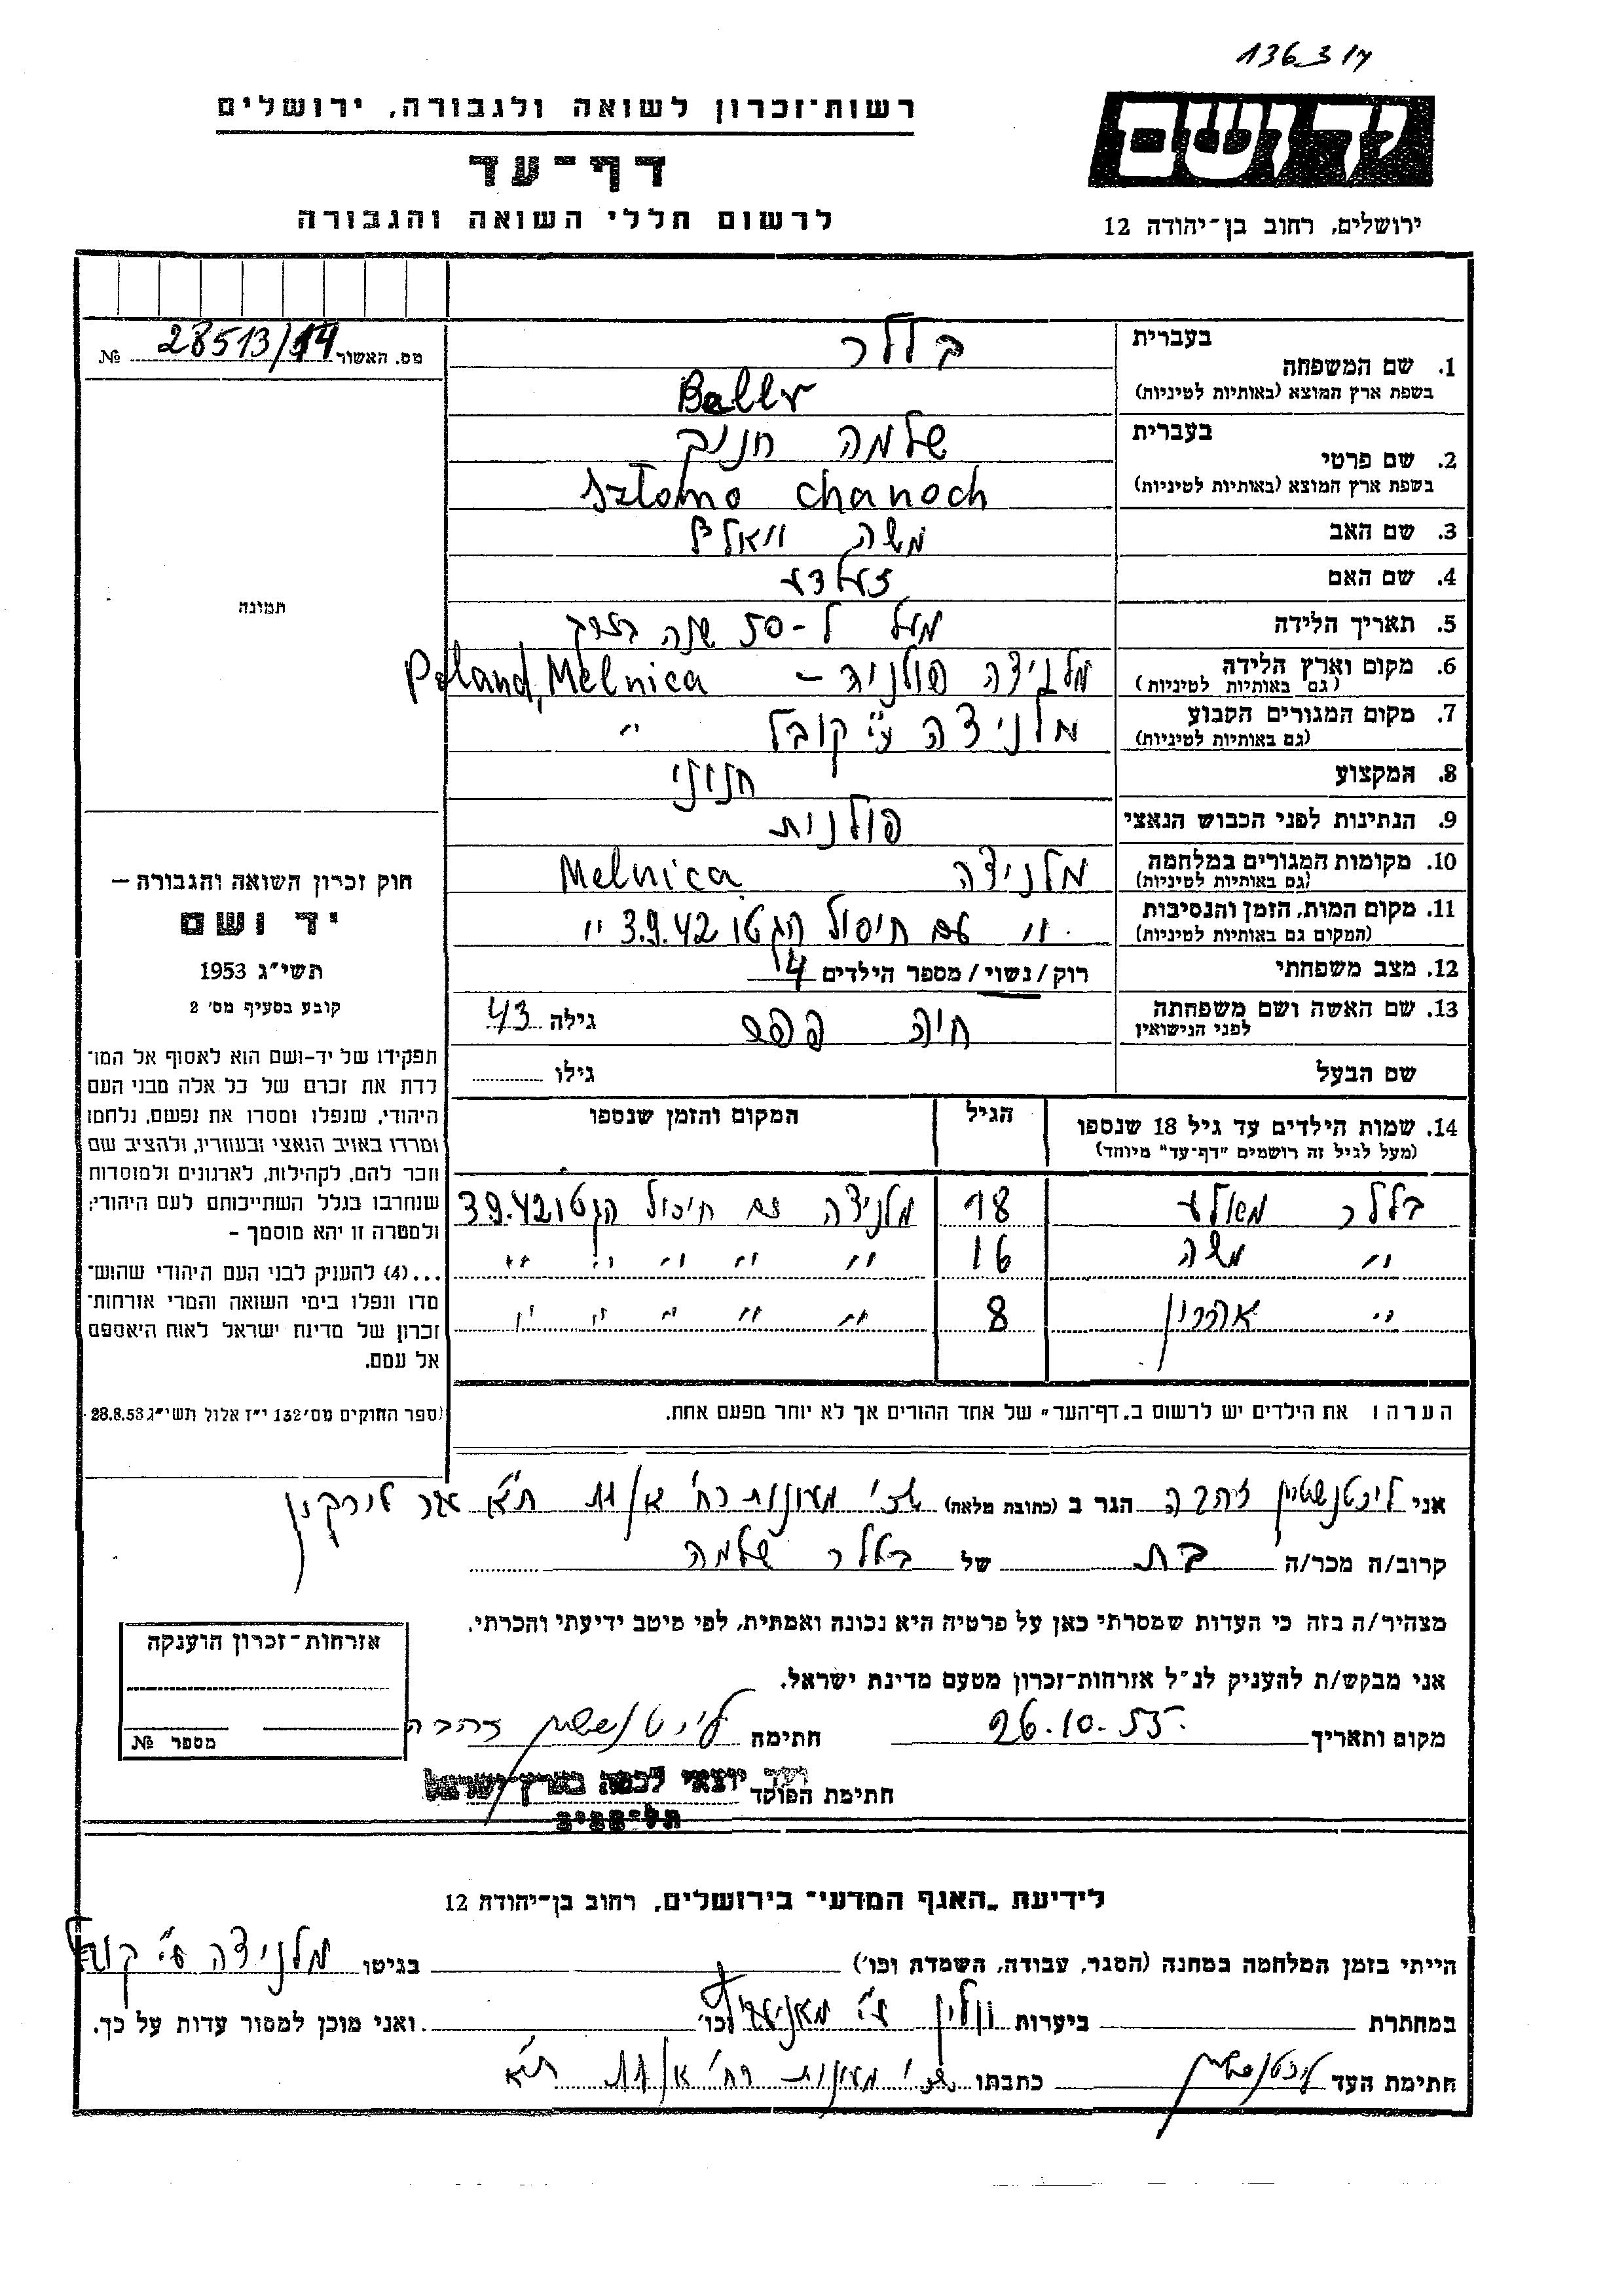 136314
רשות־זכרון לשואה ולגבורה, ירושלים
דף־עד
לרשום חללי השואה והגבורה
יד ושם
ירושלים, רחוב בן־יהודה 12
מס. האשור 28513/14 №
תמונה
1. שם המשפחה בעברית בללר
בשפת ארץ המוצא (באותיות לטיניות) Beller
2. שם פרטי בעברית שלמה חנוך
בשפת ארץ המוצא (באותיות לטיניות) Szlomo chanoch
3. שם האב משה
4. שם האם זעלדע
5. תאריך הלידה מעל ל-50 שנה בערך
6. מקום וארץ הלידה (גם באותיות לטיניות) מלניצה פולניה – Poland, Melnica
7. מקום המגורים הקבוע (גם באותיות לטיניות) מלניצה ע"י קובל "
8. המקצוע חנוני
9. הנתינות לפני הכבוש הנאצי פולנית
10. מקומות המגורים במלחמה (גם באותיות לטיניות) מלניצה Melnica
11. מקום המות, הזמן והנסיבות (המקום גם באותיות לטיניות) " עם חיסול הגטו 3.9.42 "
12. מצב משפחתי רוק/נשוי/מספר הילדים 4
13. שם האשה ושם משפחתה לפני הנישואין חיה גילה 43
שם הבעל גילו
14. שמות הילדים עד גיל 18 שנספו (מעל לגיל זה רושמים "דף־עד" מיוחד) הגיל המקום והזמן שנספו
בללר 18 מלניצה עם חיסול הגטו 3.9.42
" משה 16 " " " " "
" אהרון 8 " " " " "
הערה: את הילדים יש לרשום ב„דף־העד" של אחד ההורים אך לא יותר מפעם אחת.
חוק זכרון השואה והגבורה —
יד ושם
תשי"ג 1953
קובע בסעיף מס' 2
תפקידו של יד-ושם הוא לאסוף אל המו־
לדת את זכרם של כל אלה מבני העם
היהודי, שנפלו ומסרו את נפשם, נלחמו
ומרדו באויב הנאצי ובעוזריו, ולהציב שם
וזכר להם, לקהילות, לארגונים ולמוסדות
שנחרבו בגלל השתייכותם לעם היהודי;
ולמטרה זו יהא מוסמך –
...(4) להעניק לבני העם היהודי שהוש־
מדו ונפלו בימי השואה והמרי אזרחות־
זכרון של מדינת ישראל לאות היאספם
אל עמם.
(ספר החוקים מס' 132 י"ז אלול תשי"ג 28.8.53
אני ליכטנשטיין זהבה הגר ב (כתובת מלאה) שכ' מעונות רח' א/11 ת"א
קרוב/ה מכר/ה בת של בללר שלמה
מצהיר/ה בזה כי העדות שמסרתי כאן על פרטיה היא נכונה ואמתית, לפי מיטב ידיעתי והכרתי.
אני מבקש/ת להעניק לנ"ל אזרחות־זכרון מטעם מדינת ישראל.
מקום ותאריך 26.10.55 חתימה ליכטנשטיין זהבה
חתימת הפוקד
אזרחות־זכרון הוענקה
מספר №
לידיעת „האגף המדעי" בירושלים, רחוב בן־יהודה 12
הייתי בזמן המלחמה במחנה (הסגר, עבודה, השמדה וכו') בגיטו מלניצה ע"י קובל
במחתרת ביערות ווולין ע"י וכו' ואני מוכן למסור עדות על כך.
חתימת העד ליכטנשטיין כתבתו שכ' מעונות רח' א/11 ת"א